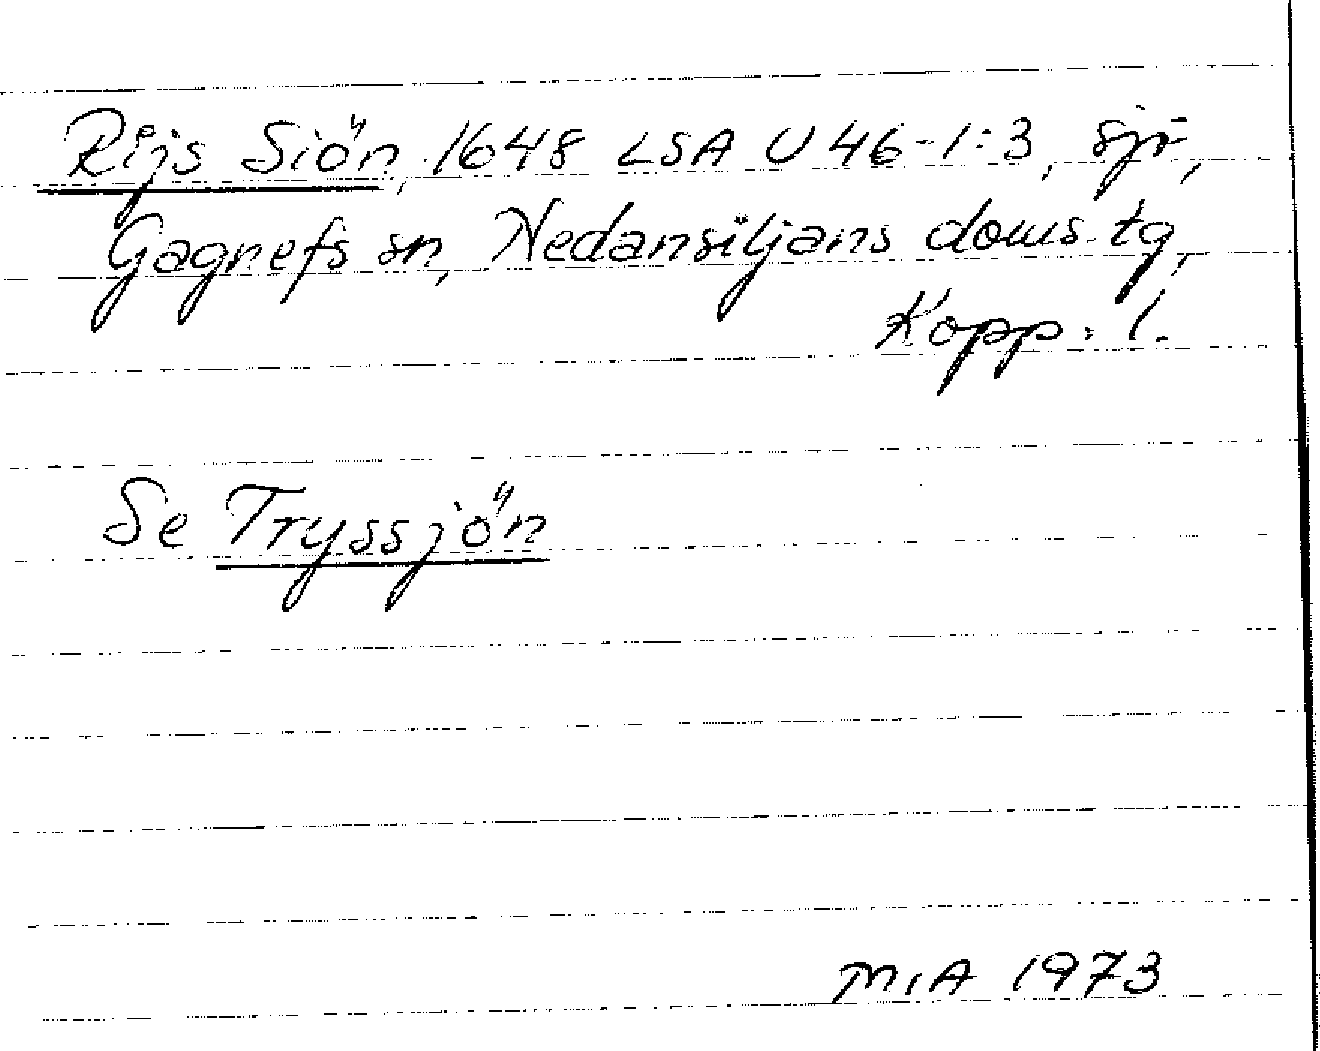 Rijs Siön, 1648 LSA U 46-1:3, sjö,
Gagnefs sn, Nedansiljans doms. tg,
Kopp. l.
Se Tryssjön
MIA 1973